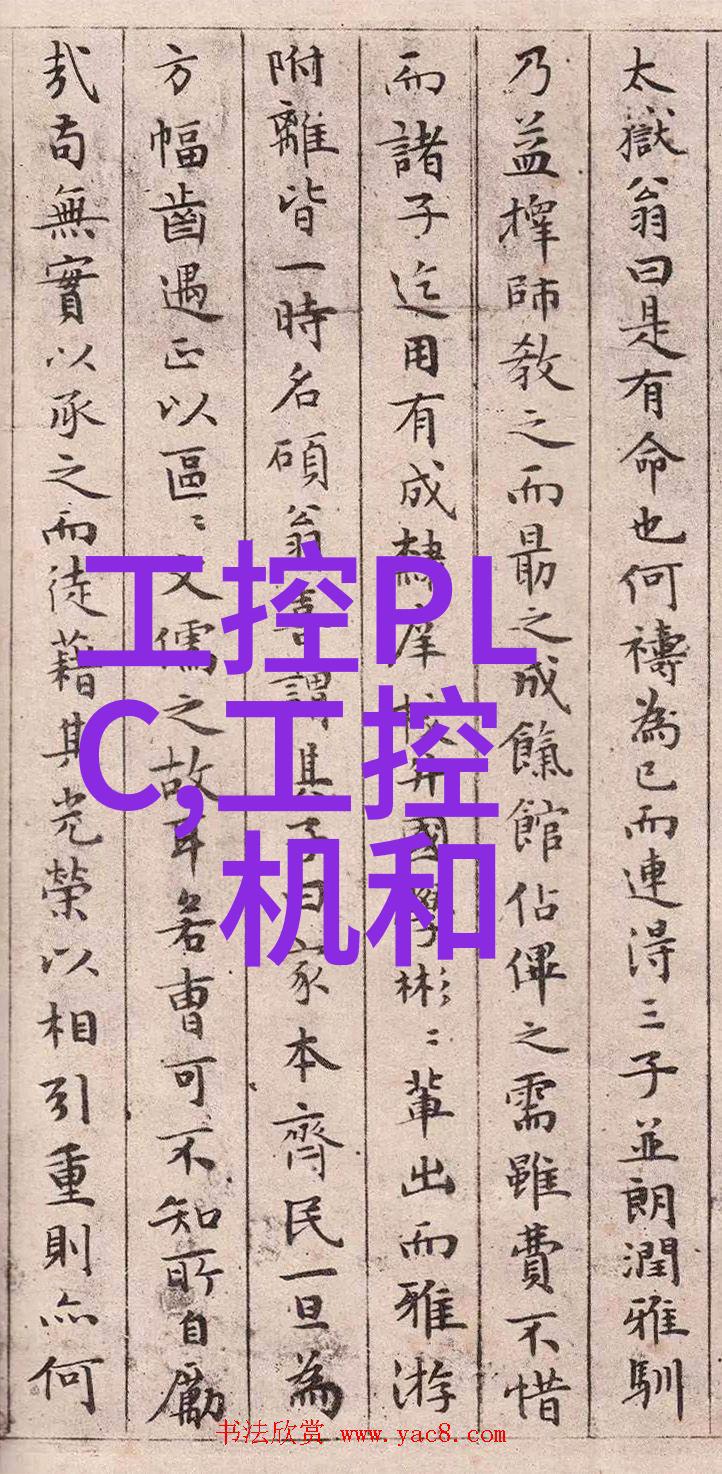 太嶽翁曰是有命也何禱為已而連得三子並朗潤雅馴
乃益擇師教之而最之成餼館佔俾之需雖費不惜
而諸子迄用有成隸庠校弁國學彬彬輩出而雅游
附離皆一時名碩翁喜謂其子曰家本齊民一旦為
方幅齒遇正以區區文儒之故耳若曹可不知所自勵
哉苟無實以承之而徒藉其光榮以相引重則亦何
工控PL
C,工控
机和
书法欣赏 www.yac8.com